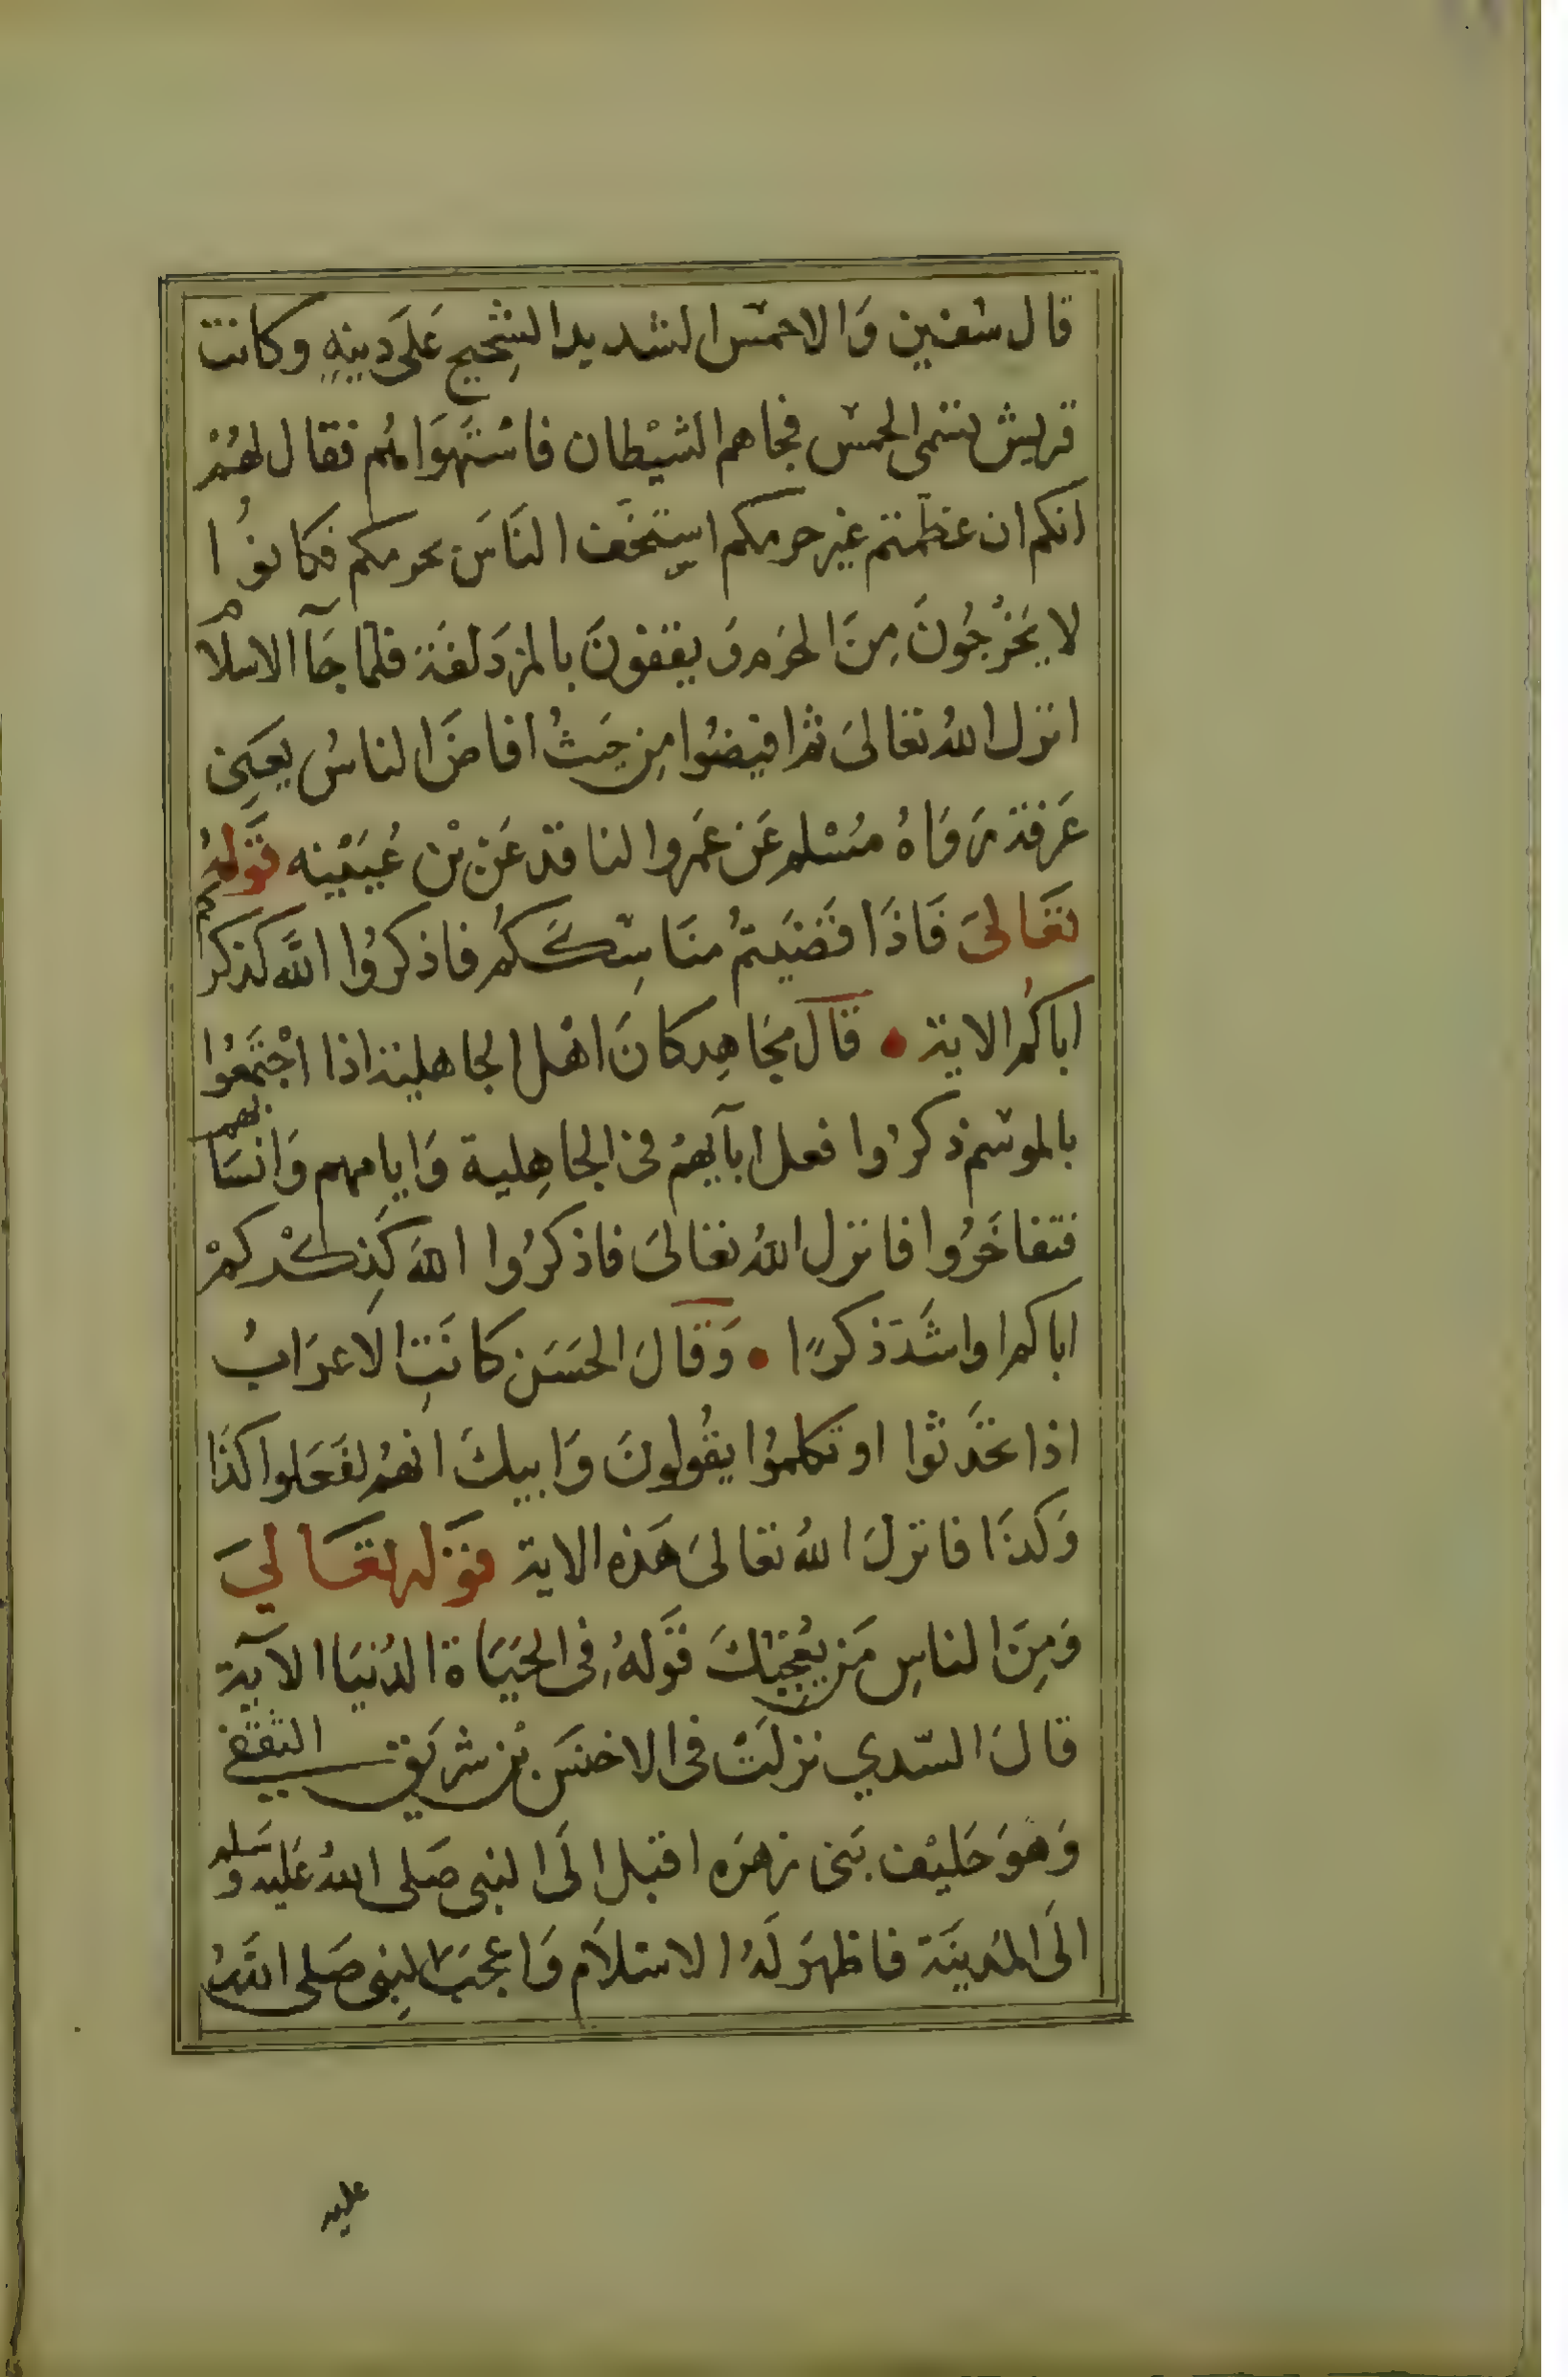 قال سفين وَالاحمس الشديد الشِحيح عَلَى دَينِهِ وكانت
قريش تسمى الحمس فجاهم الشيْطان فاسْتَهوَاهُم فقال لهُمْ
انكم ان عظمتم غير حرمكم استخف النَاسَ بحرمكم فكانوُا
لا يَخْرُجُونَ مِنَ الحَرم وَيقفونَ بالمزدَلفَة فلما جَآ الاسلام
انزل اللهُ تعالىَ ثم افيضُوا مِن حَيثُ افاضَ الناسُ يعَنِي
عَرفة رَوَاهُ مسْلم عَن عَمروا الناقد عَن بْن عُيَيْينه قَولهُ
تَعَالىَ فَاذَا قَضَيتمُ منَاسِككُم فاذكرُوا اللَّه كذكركم
اباكُم الاية • قالَ مجَاهِد كانَ اهْل الجاهلية اذا اجْتَمَعُوا
بالموسم ذكرُوا فعل ابآيهمُ فى الجاهِلية وَايامِهم وَانسَابهم
فتفاخَرُوا فانزل اللهُ تعَالىَ فاذكرُوا اللهَ كَذِكْركمْ
اباكم او اشَدَ ذكرًا • وَقَالَ الحَسَن كانَتِ الاَعرَابُ
اذا تحَدثوا او تكلموُا يقُولونَ وَابيكَ انهمُ لفَعَلوا كذَا
وَكذَا فانزلَ اللهُ تعَالىَ هَذه الاية قوَله تعَالىَ
وَمِنَ الناسِ مَن يُعْجِبُكَ قَولهُ فِى الحَيَاة الدُنيَا الآية
قالَ السّدي نزلَتْ فى الاخنسَ بْن شريَق الثقفي
وَهوَ حَليْف بَنى زهرَه اقبل الَى النبى صَلى اللهُ عَليه وَسَلم
الَى المَدينَة فاظهرَ لهُ الاسلاَم وَاعجَبَ النبِى صَلى اللهُ
عليه